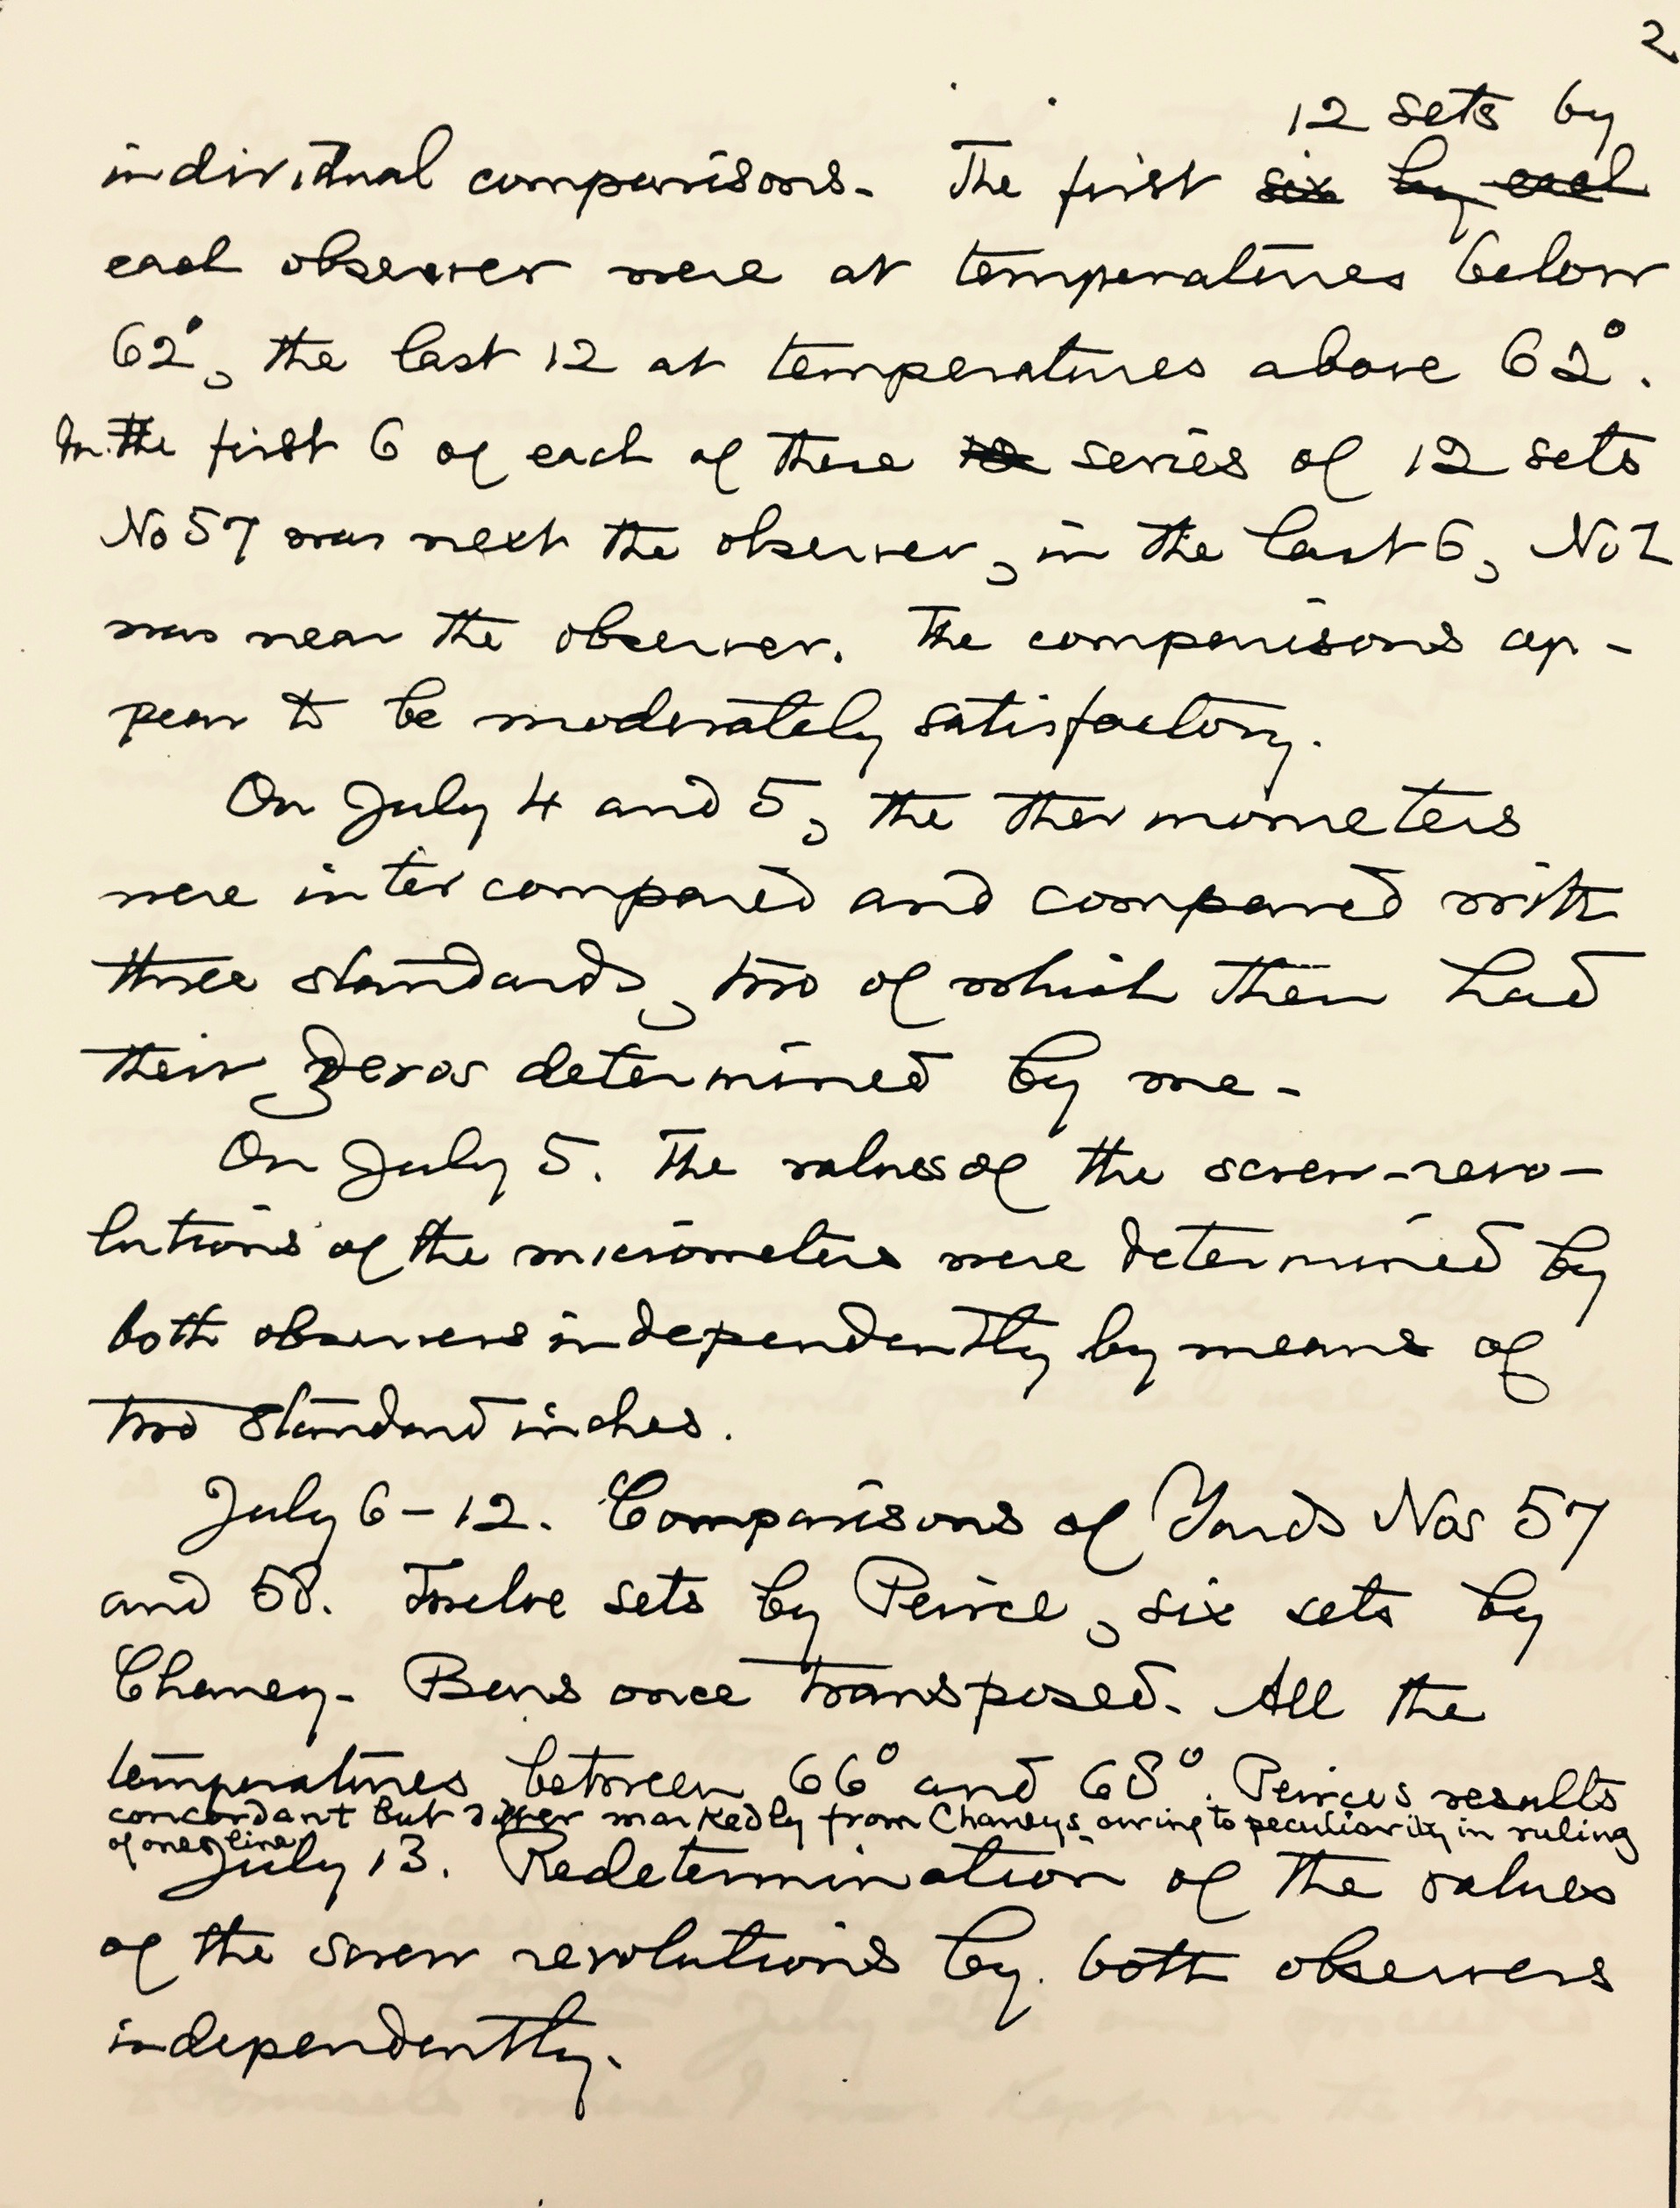 2.
12 sets by
individual comparisons. The first six by each
each observer were at temperatures below
62°, the last 12 at temperatures above 62°.
In the first 6 of each of these series of 12 sets
No 57 was next the observer, in the last 6, No 1
was near the observer. The comparisons ap-
pear to be moderately satisfactory.
On July 4 and 5, the thermometers
were intercompared and compared with
three standards, two of which then had
their zeros determined by me.
On July 5. The values of the screw-revo-
lutions of the micrometers were determined by
both observers independently by means of
two standard inches.
July 6-12. Comparisons of Yards Nos 57
and 58. Twelve sets by Peirce, six sets by
Chaney. Bars once transposed. All the
temperatures between 66° and 68°. Peirces results
concordant but differ markedly from Chaneys owing to peculiarity in ruling
of one line
July 13. Redetermination of the values
of the screw revolutions by both observers
independently.